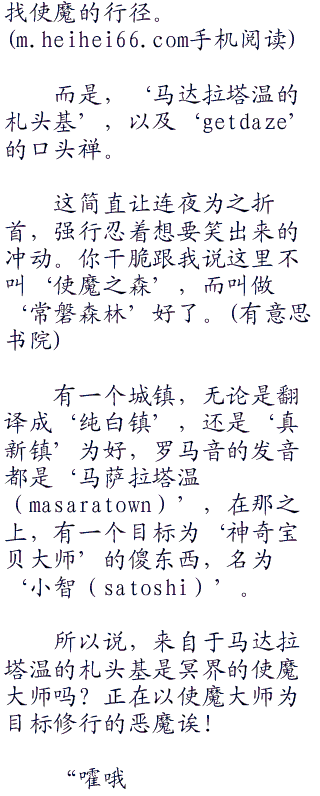 找使魔的行径。
(m.heihei66.com手机阅读)
而是，‘马达拉塔温的
札头基’，以及‘getdaze’
的口头禅。
这简直让连夜为之折
首，强行忍着想要笑出来的
冲动。你干脆跟我说这里不
叫‘使魔之森’，而叫做
‘常磐森林’好了。(有意思
书院)
有一个城镇，无论是翻
译成‘纯白镇’，还是‘真
新镇’为好，罗马音的发音
都是‘马萨拉塔温
（masaratown）’，在那之
上，有一个目标为‘神奇宝
贝大师’的傻东西，名为
‘小智（satoshi）’。
所以说，来自于马达拉
塔温的札头基是冥界的使魔
大师吗？正在以使魔大师为
目标修行的恶魔诶！
“嚯哦